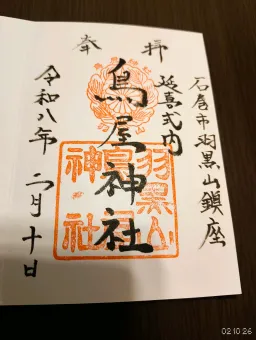 奉拝
石巻市羽黒山鎮座
延喜式内
鳥屋神社
令和八年二月十日
羽黒山
鳥屋
神社
02 10 26